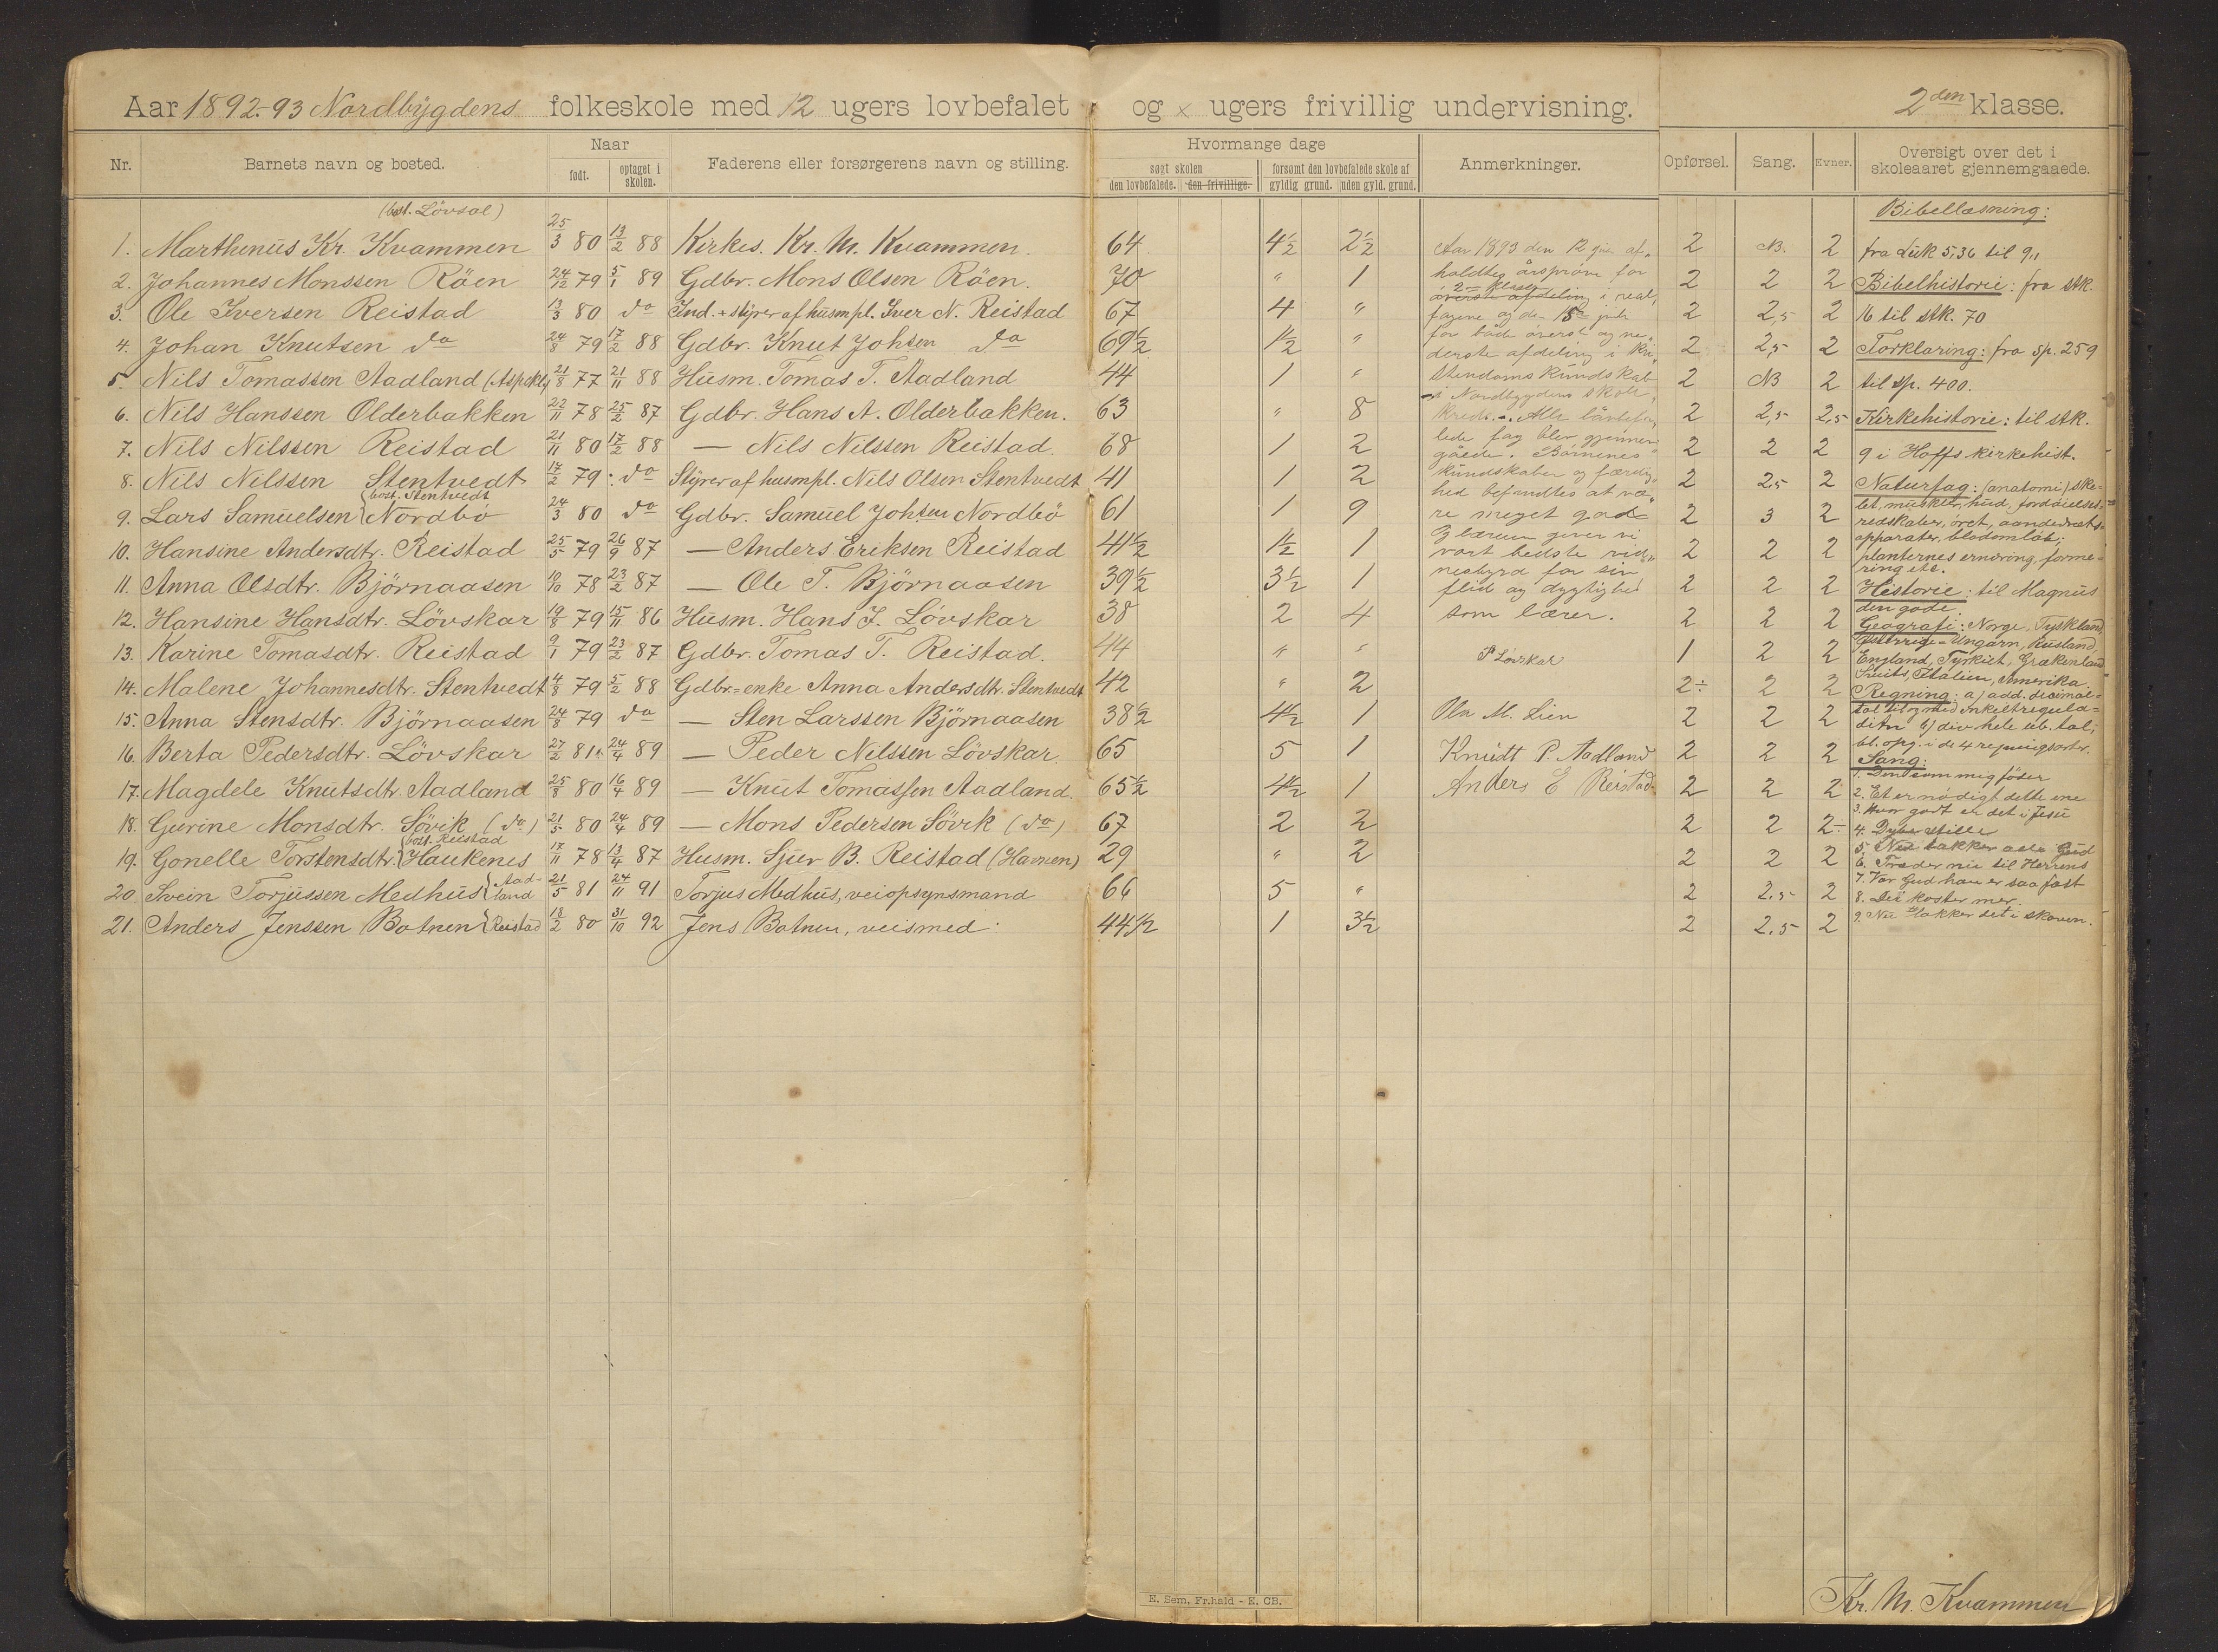 Aar 1892-93 Nordbÿgdens folkeskole med 12 ugers lovbefalet og x ugers frivillig undervisning. 2den klasse.
Nr. Barnets navn og bosted. Naar født. optaget i skolen. Faderens eller forsørgerens navn og stilling. Hvormange dage søgt skolen den lovbefalede. den frivillige. forsømt den lovbefalede skole af gyldig grund. uden gyld. grund. Anmerkninger. Opførsel. Sang. Evner. Oversigt over det i skoleaaret gjennemgaaede.
(bost. Lövsal)
1. Marthenus Kr. Kvammen 25/3 80 13/2 88 Kirkes. Kr. M. Kvammen. 64 4 1/2 2 1/2 2 NB. 2
2. Johannes Monssen Röen 24/12 79 5/1 89 Gdbr. Mons Olsen Röen. 70 " 1 2 2 2
3. Ole Iversen Reistad 13/3 80 do Ind. + styrer af husmpl. Iver N. Reistad 67 4 " 2 2,5 2
4. Johan Knutsen do 24/8 79 17/2 88 Gdbr. Knut Johsen do 69 1/2 1/2 " 2 2,5 2
5. Nils Tomassen Aadland 21/8 77 21/11 88 Husm. Tomas T. Aadland 44 1 " 2 NB 2
6. Nils Hanssen Olderbakken 22/11 78 25/2 87 Gdbr. Hans A. Olderbakken. 63 " 8 2 2,5 2,5
7. Nils Nilssen Reistad 21/11 80 17/2 88 — Nils Nilssen Reistad. 68 1 2 2 2 2
8. Nils Nilssen Stentvedt 17/2 79 do Styrer af husmpl. Nils Olsen Stentvedt 41 1 2 2 2,5 2
9. Lars Samuelsen {bost. Stentvedt Nordbö 24/3 80 do Gdbr. Samuel Johsen Nordbö 61 1 9 2 3 2
10. Hansine Andersdtr. Reistad 25/5 79 26/9 87 — Anders Eriksen Reistad 41 1/2 1/2 1 2 2 2
11. Anna Olsdtr. Björnaasen 10/10 78 23/2 87 — Ole T. Björnaasen 39 1/2 3 1/2 1 2 2 2
12. Hansine Hansdtr. Lövskar 19/8 79 15/11 86 Husm. Hans J. Lövskar 38 2 4 2 2 2
13. Karine Tomasdtr. Reistad 9/1 79 23/2 87 Gdbr. Tomas T. Reistad. 44 " " 1 2 2
14. Malene Johannesdtr. Stentvedt 4/8 79 5/2 88 Gdbr=enke Anna Andersdtr. Stentvedt 42 " 2 2÷ 2 2
15. Anna Stensdtr. Björnaasen 24/8 79 do — Sten Larssen Björnaasen 38 1/2 4 1/2 1 2 2 2
16. Berta Pedersdtr. Lövskar 27/2 81 24/4 89 — Peder Nilssen Lövskar. 65 5 1 2 2 2
17. Magdele Knutsdtr. Aadland 25/8 80 16/4 89 — Knut Tomassen Aadland. 65 1/2 4 1/2 1 2 2 2
18. Gurine Monsdtr. Sövik (do) 21/5 80 24/4 89 — Mons Pedersen Sövik (do) 67 2 2 2 2 2÷
19. Gonelle Torstensdtr. {bost. Reistad Haukenes 17/11 78 13/4 87 Husm. Sjur B. Reistad (Havnen) 29 " 2 2 2 2
20. Svein Torjussen Medhus {Aadland 21/5 81 24/11 91 Torjus Medhus, veiopsynsmand 66 5 " 2 2.5 2
21. Anders Jenssen Botnen {Reistad 18/2 80 31/10 92 Jens Botnen, veismed: 44 1/2 1 3 1/2 2 2.5 2
Aar 1893 den 12 af-
holdtes årspröve for
2den klasse
överste afdeling i real-
fagene og den
for både överst og ne-
derste afdeling i kri-
stendomskundskab
i Nordbygdens skole-
kreds. Alle lovbefa-
lede fag blev gjennem-
gåede. Börnenes
kundskaber og færdig-
hed befandtes at væ-
re meget gode
Og læreren giver vi
vort bedste vid-
nesbyrd for sin
flid og dygtighed
som lærer.
P Lövskar
Ola M. Lien
Knudt P. Aadland
Anders E Reistad.
Bibellæsning:
fra Luk 5,36 til 9,1
Bibelhistorie: fra stk.
16 til stk. 70
Forklaring: fra sp. 259
til sp. 400.
Kirkehistorie: til stk.
9 i Hoffs kirkehist.
Naturfag: (anatomi) ske-
let, muskler, hud, fordöielses-
redskaber, öret, aandedræts-
apparater, blodomlöb;
planternes ernæring, forme-
ring etc.
Historie: til Magnus
den gode.
Geografi: Norge, Tyskland,
Østerrige-Ungarn, Rusland,
England, Tyrkiet, Grækenland
Sveits, Italien, Amerika.
Regning: a) add. decimal-
tal til og med enkelt regula-
detri b) div. hele ub. tal;
bl. opg. i de 4 regningsarter.
Sang:
1. Den som mig föder
2. Et er nödigt dette ene
3. Hvor godt er det i Jesu
4. Dybe stille
5. Nu takker alle Gud
6. Træder nu til Herrens
7. Vor Gud han er saa fast
8. Det koster mer.
9. Nu lakker det i skoven.
E. Sem, Fr.hald - E. CB.
Kr. M. Kvammen